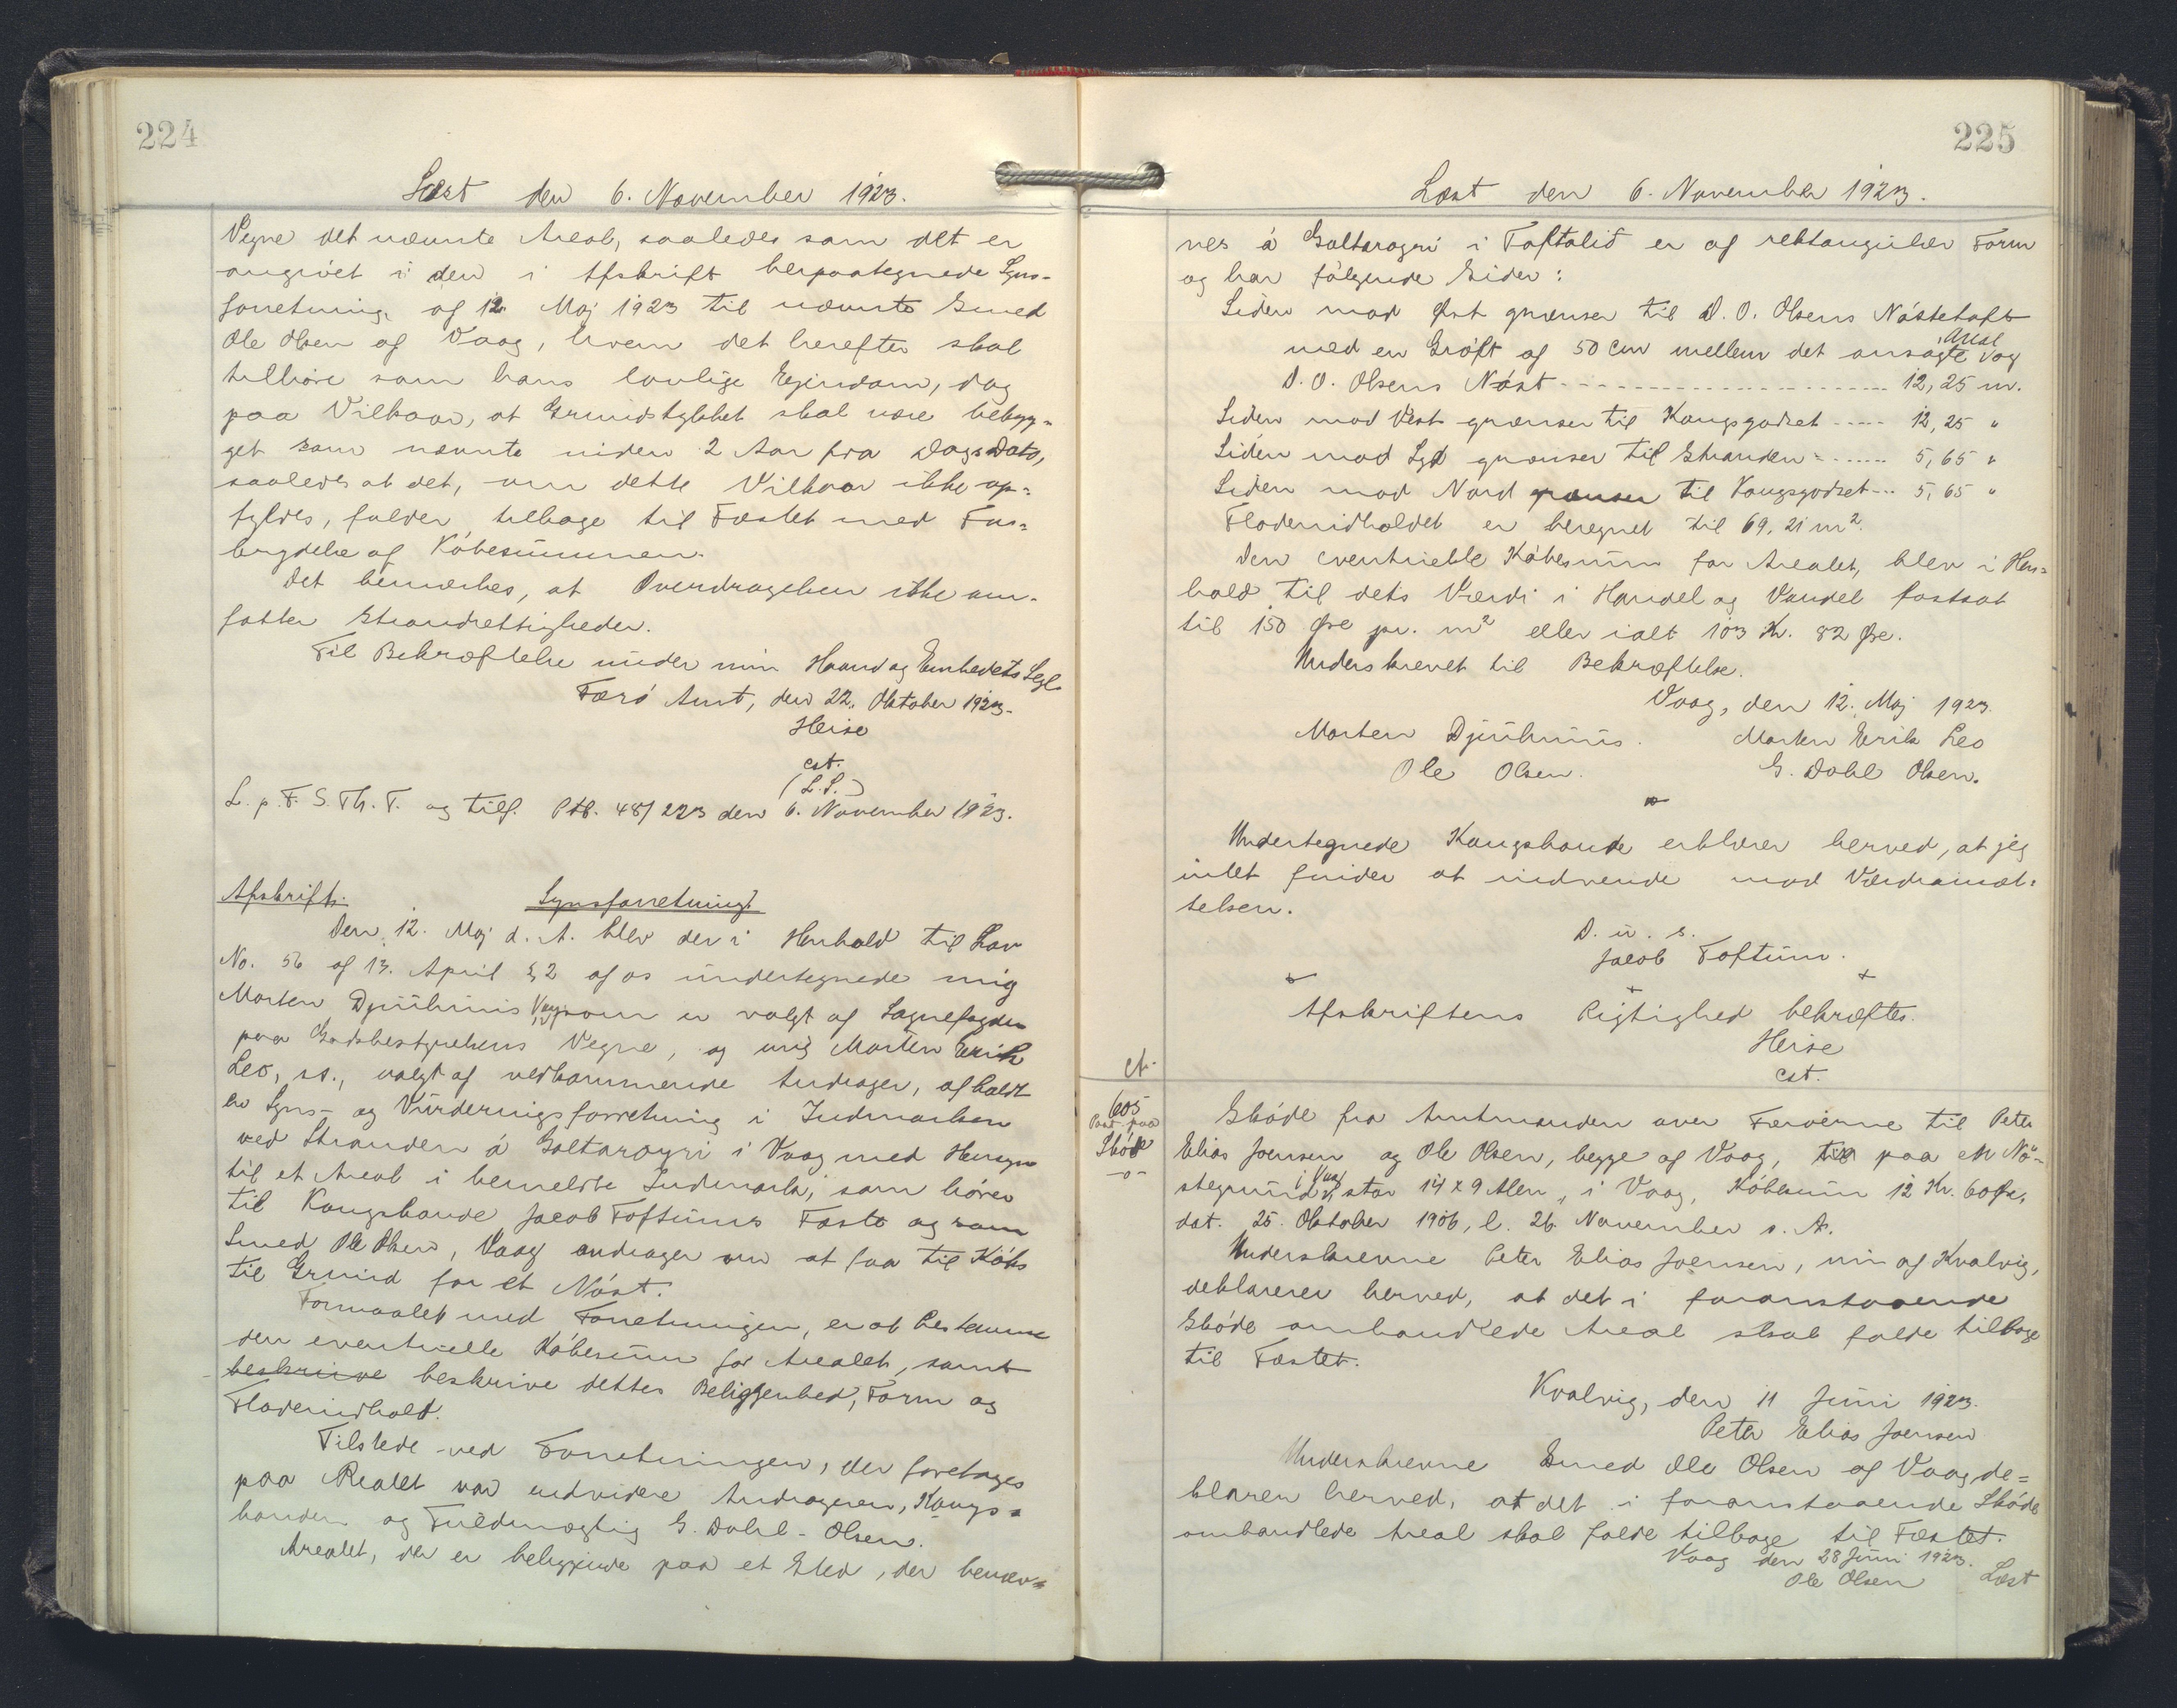 224
Læst den 6. November 1923.
Vegne det nævnte Areal, saaledes som det er
angivet i den i Afskrift herpaategnede Syns-
forretning af 12. Maj 1923 til nævnte Smed
Ole Olsen af Vaag, hvem det herefter skal
tilhøre som hans lovlige Ejendom, dog
paa Vilkaar, at Grundstykket skal være bebyg-
get som nævnte inden 2 Aar fra Dags Dato,
saaledes at det, om dette Vilkaar ikke op-
fyldes, falder tilbage til Fæstet med For-
brydelse af Købesummen.
Det bemærkes, at Overdragelsen ikke om-
fatter Strandrettigheder.
Til Bekræftelse under min Haand og Embedets Segl.
Færø Amt, den 22. Oktober 1923.
Heise
cst.
(L.S.)
L. p. F. S. Th. T. og tilf. Ptb. 48/223 den 6. November 1923.
Afskrift. Synsforretning.
Den 12. Maj d. A. blev der i Henhold til Lov
No. 56 af 13. April § 2 af os undertegnede mig
Morten Djurhuus, Vaag, som er valgt af Sognefogden
paa Godsbestyrelsens Vegne, og mig Morten Erik
Leo, ss., valgt af vedkommende Andrager, afholdt
en Syns- og Vurderingsforretning i Indmarken
ved Stranden á Goltaroyri i Vaag med Hensyn
til et Areal i bemeldte Indmark, som hører
til Kongsbonde Jacob Toftums Fæste og som
Smed Ole Olsen, Vaag andrager om at faa til Købs
til Grund for et Nøst.
Formaalet med Forretningen, er at bestemme
den eventuelle Købesum for Arealet, samt
beskrive beskrive dettes Beliggenhed, Form og
Fladeindhold.
Tilstede ved Forretningen, der foretages
paa Arealet var endvidere Andrageren, Kongs-
bonden og Fuldmægtig G. Dahl-Olsen.
Arealet, der er beliggende paa et Sted, der benæv-
225
Læst den 6. November 1923.
nes á Goltarogri i Toftalid er af rektangulær Form
og har følgende Sider:
Siden mod Øst grænser til D. O. Olsens Nøstetoft
med en Grøft af 50 cm mellem det ansøgte Areal og
D. O. Olsens Nøst ---------- 12,25 m.
Siden mod Vest grænser til Kongsgodset ----- 12,25 "
Siden mod Syd grænser til Stranden ------ 5,65 "
Siden mod Nord grænser til Kongsgodset --- 5,65 "
Fladeindholdet er beregnet til 69,21 m².
Den eventuelle Købesum for Arealet, blev i Hen-
hold til dets Værdi i Handel og Vandel fastsat
til 150 Øre pr. m² eller ialt 103 Kr. 82 Øre.
Underskrevet til Bekræftelse.
Vaag, den 12. Maj 1923.
Morten Djurhuus. Morten Erik Leo
Ole Olsen. G. Dahl Olsen.
Undertegnede Kongsbonde erklærer herved, at jeg
intet finder at indvende mod Værdiansæt-
telsen.
D. u. s.
Jacob Toftum.
Afskriftens Rigtighed bekræftes.
Heise
cst.
605
Paat. paa
Skøde
-o-
Skøde fra Amtmanden over Færøerne til Peter
Elias Joensen og Ole Olsen, begge af Vaag, paa et Nø-
stegrund i Vaag, stor 14 x 9 Alen, i Vaag, Købesum 12 Kr. 60 Øre,
dat. 25. Oktober 1906, l. 26. November s. A.
Underskrevne Peter Elias Joensen, nu af Kvalvig,
deklarerer herved, at det i foranstaaende
Skøde omhandlede Areal skal falde tilbage
til Fæstet.
Kvalvig, den 11 Juni 1923.
Peter Elias Joensen
Underskrevne Smed Ole Olsen af Vaag de-
klarer herved, at det i foranstaaende Skøde
omhandlede Areal skal falde tilbage til Fæstet.
Vaag den 28 Juni 1923.
Ole Olsen Læst